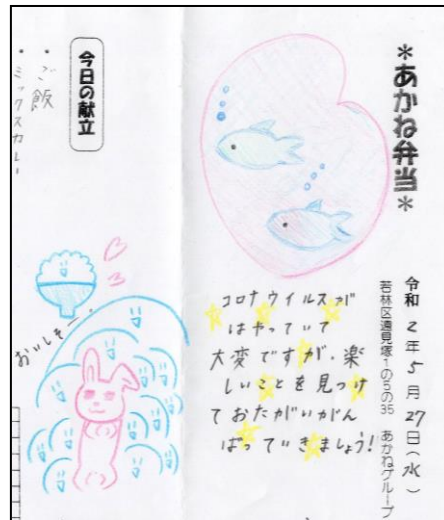 ＊あかね弁当＊
令和2年5月27日（水）
若林区遠見塚1の5の35　あかねグループ
コロナウイルスが
はやっていて
大変ですが、楽
しいことを見つけ
ておたがいがん
ばっていきましょう！
今日の献立
・ご飯
・ミックスカレー
おいしそー